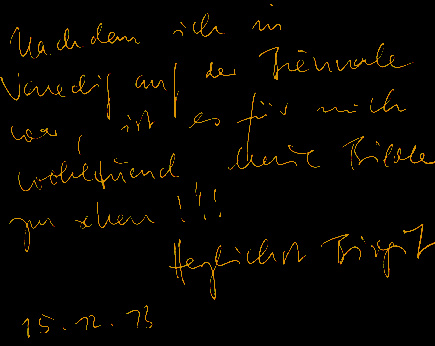 Nachdem ich in
Venedig auf der Biennale
war, ist es für mich
wohltuend deine Bilder
zu sehen !!!
Herzlichst Birgit
15.12.13